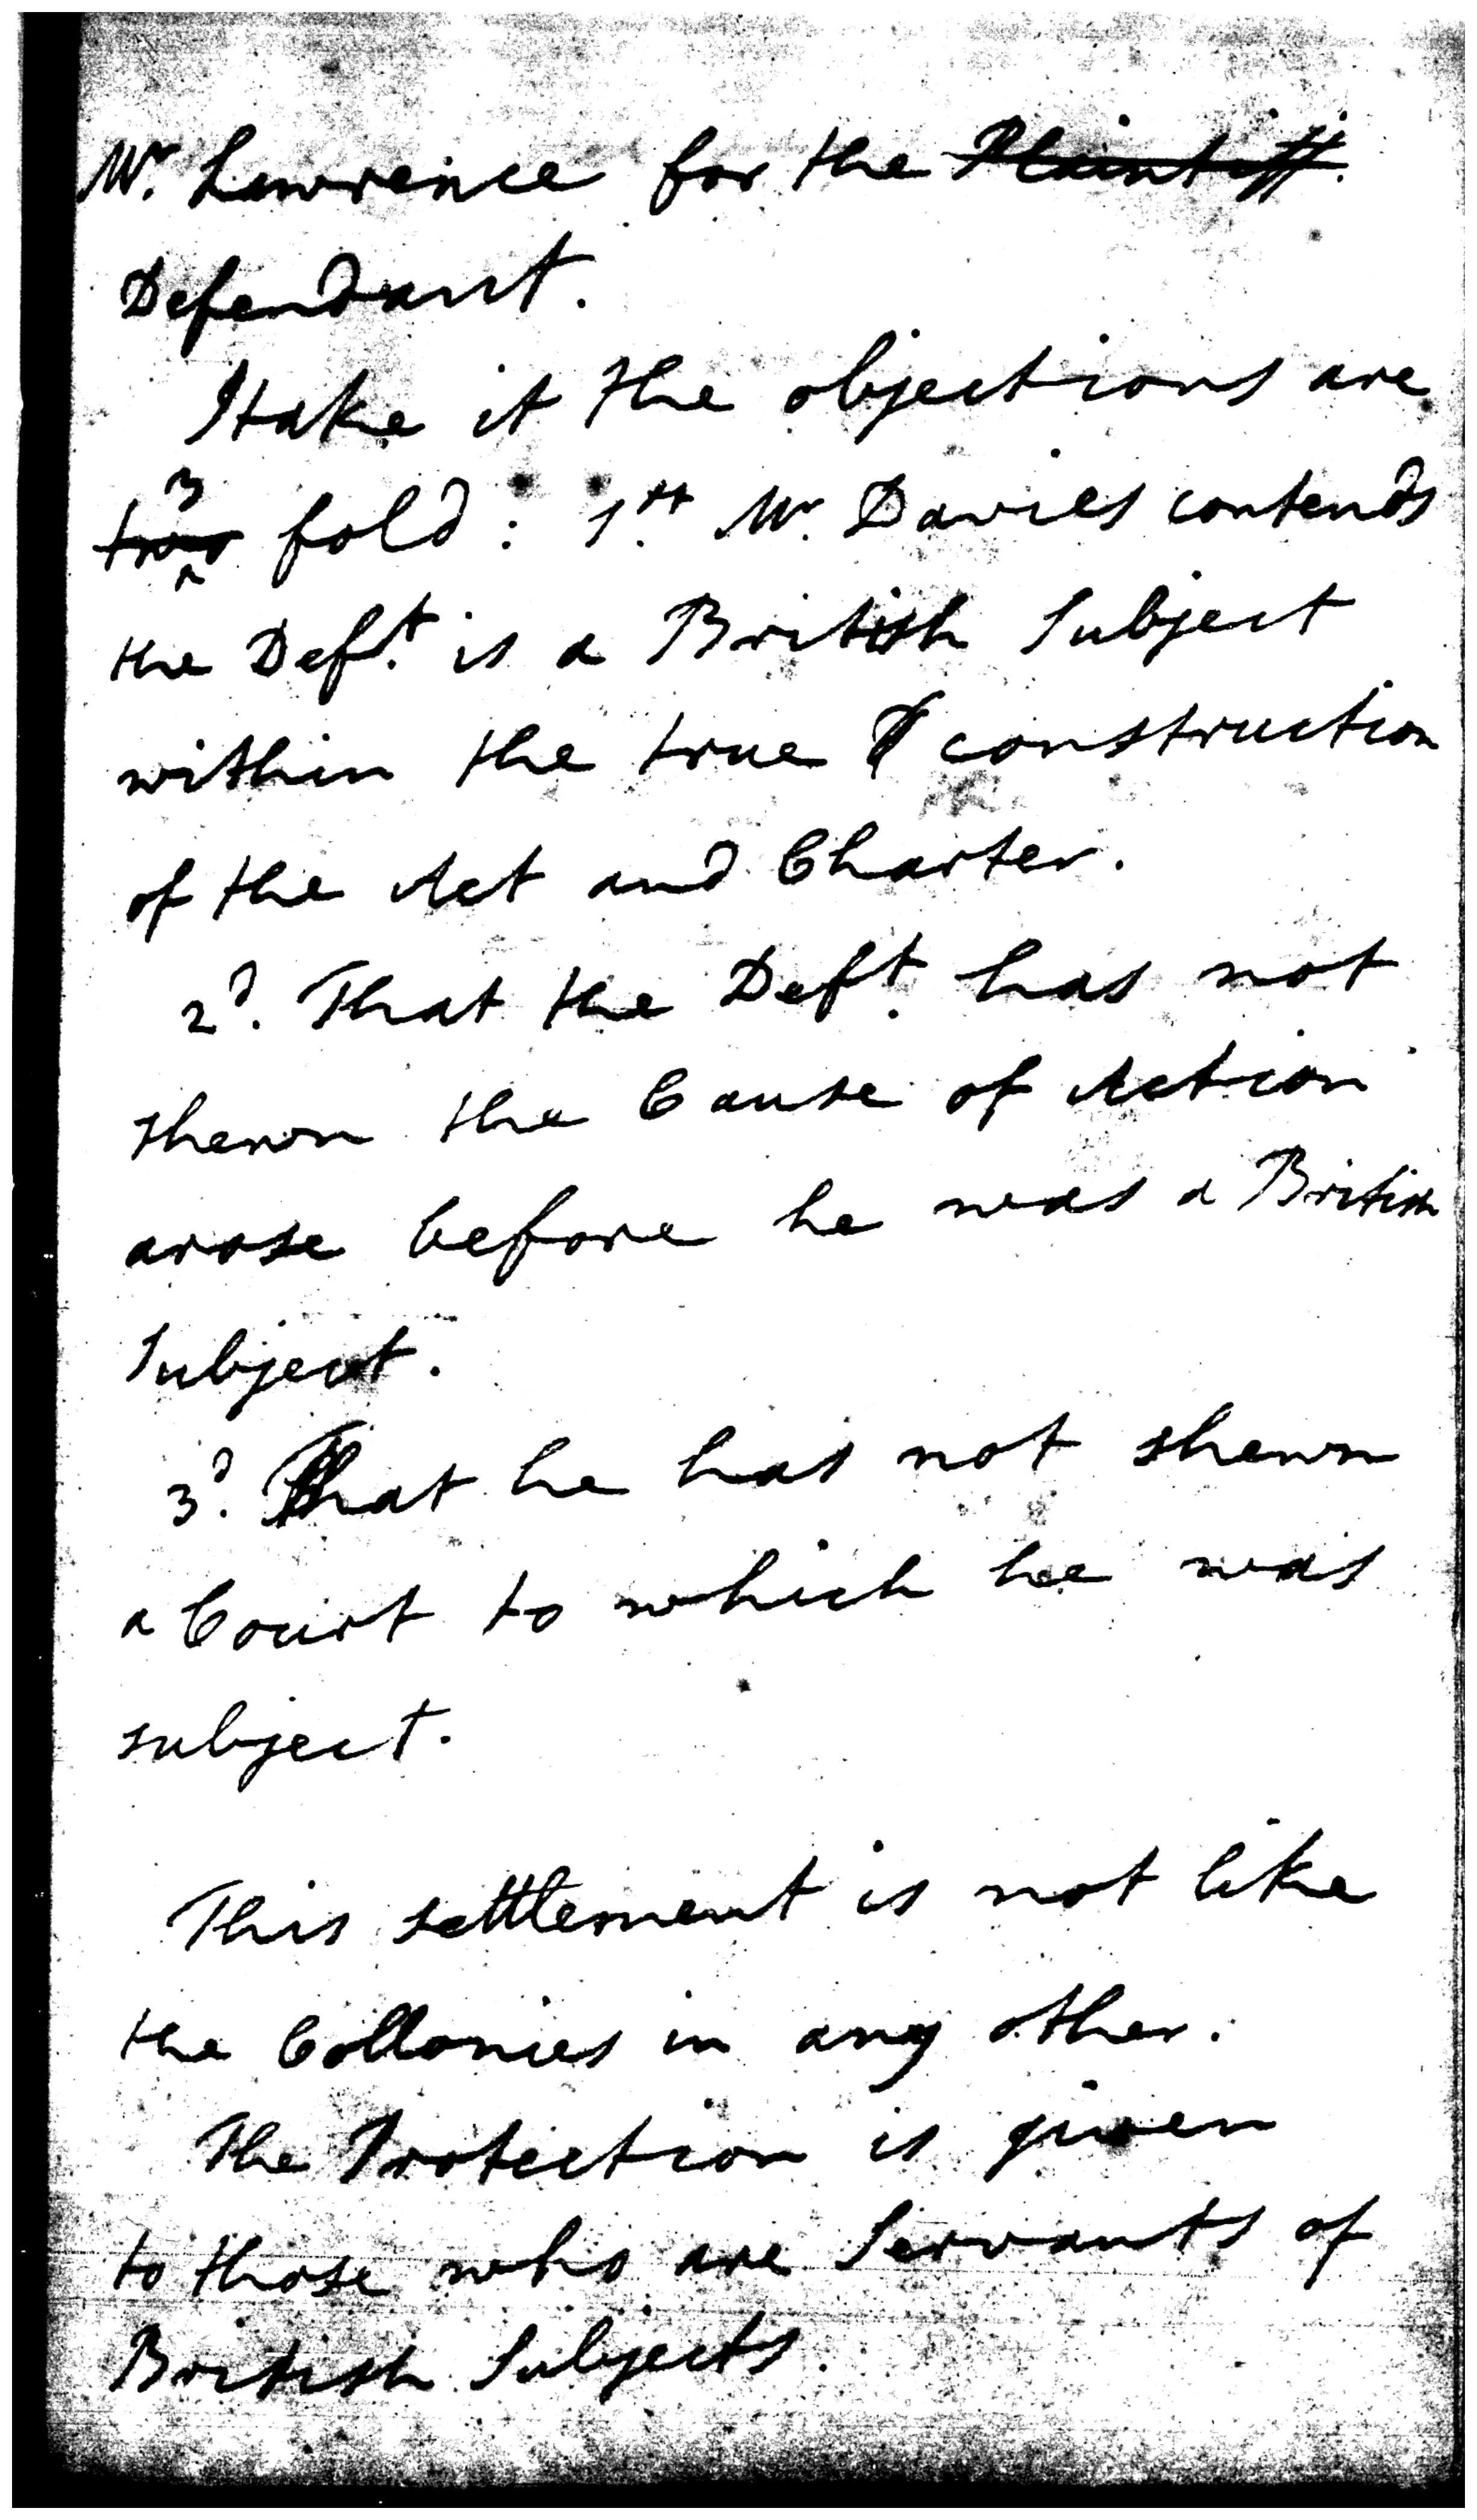 Mr. Lawrence for the Plaintiff.
Defendant.
I take it the objections are
3
two fold: 1st. Mr. Davies contends
the Deft. is a British Subject
within the true construction
of the Act and Charter.
2d. That the Deft. has not
shewn the Cause of Action
arose before he was a British
Subject.
3d. That he has not shewn
a Court to which he was
subject.
This settlement is not like
the Collonies in any other.
The Protection is given
to those who are Servants of
British Subjects.